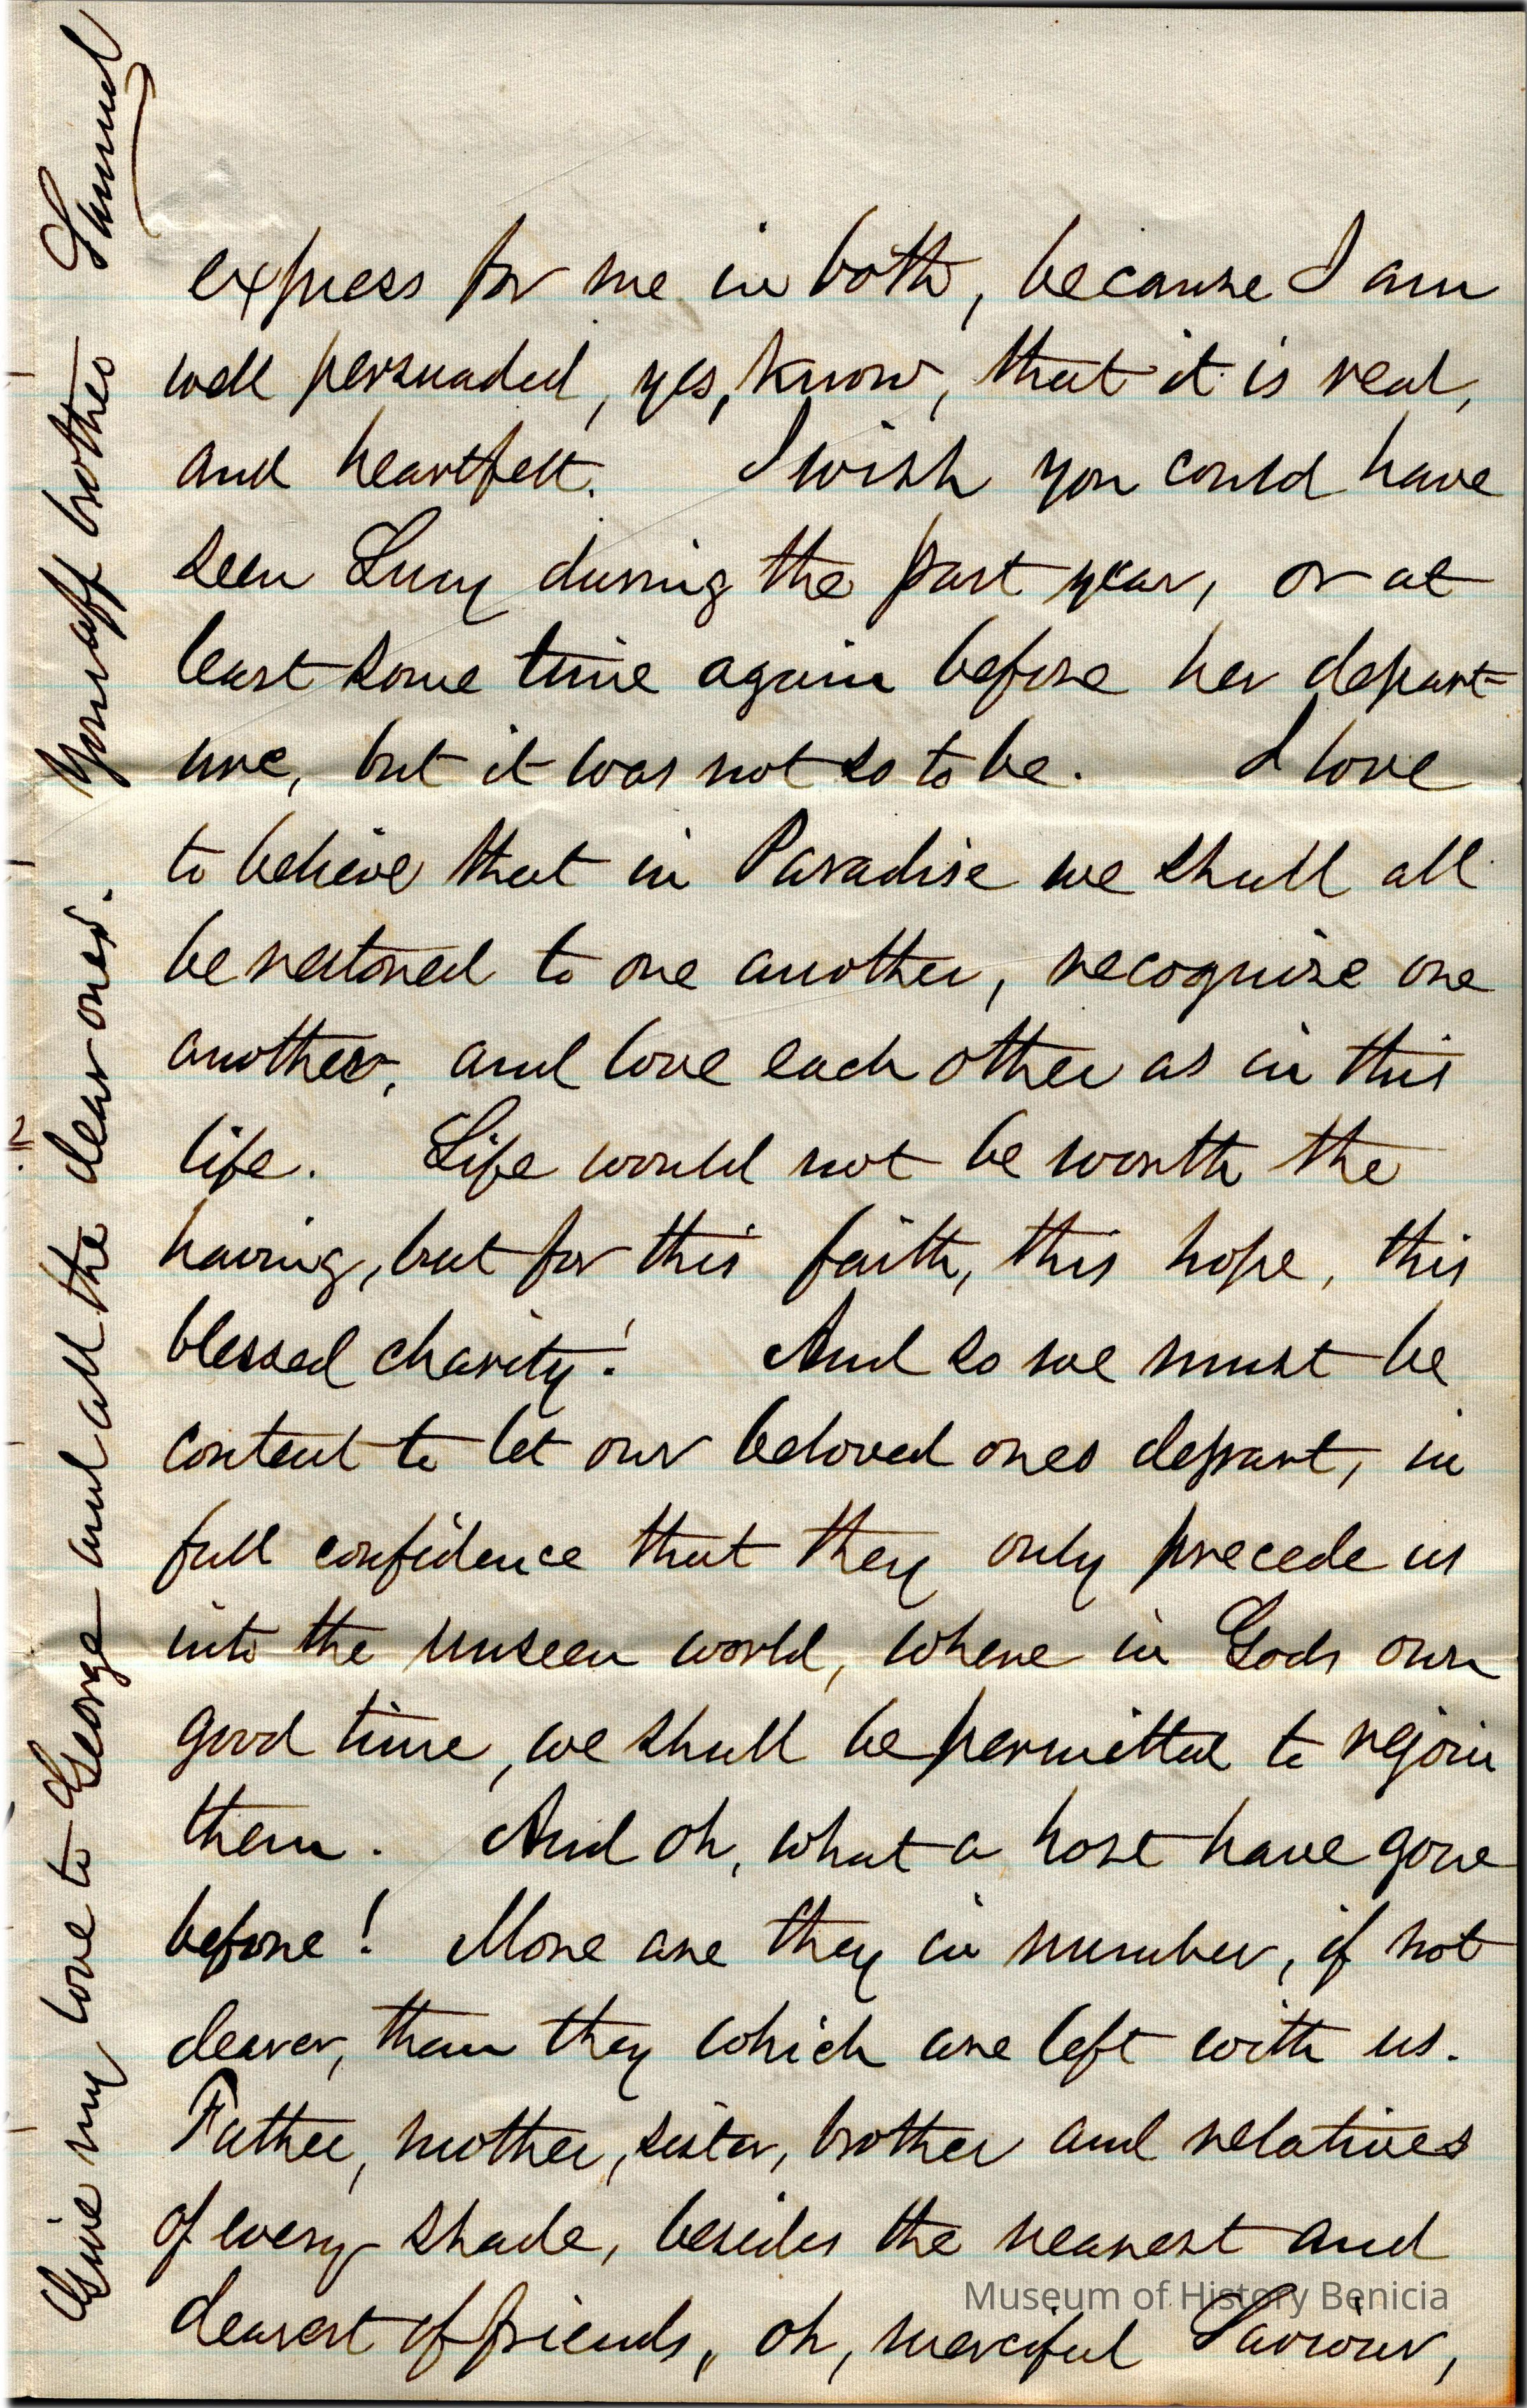 express for me in both, because I am
well persuaded, yes, know, that it is real,
and heartfelt. I wish you could have
seen Lucy during the past year, or at
least some time again before her depart=
ure, but it was not so to be. I love
to believe that in Paradise we shall all
be restored to one another, recognize one
another, and love each other as in this
life. Life would not be worth the
having, but for this faith, this hope, this
blessed charity! And so we must be
content to let our beloved ones depart, in
full confidence that they only precede us
into the unseen world, where in Gods own
good time, we shall be permitted to rejoin
them. And oh, what a host have gone
before! More are they in number, if not
dearer, than they which are left with us.
Father, mother, sister, brother and relatives
of every shade, besides the nearest and
dearest of friends, oh, merciful Saviour,
Give my love to George and all the dear ones. Your aff brother Samuel
2
Museum of History Benicia